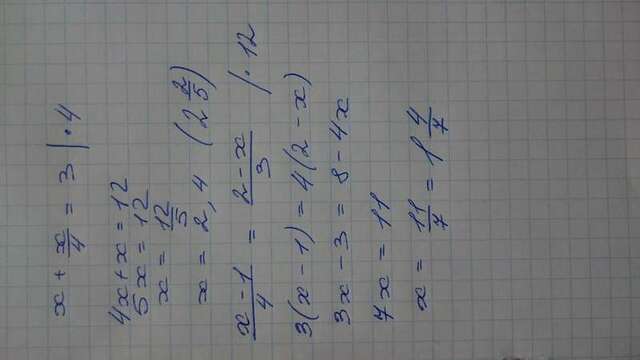 x + x/4 = 3 | · 4
4x + x = 12
5x = 12
x = 12/5
x = 2,4 (2 2/5)
x - 1/4 = 2 - x/3 /· 12
3(x - 1) = 4(2 - x)
3x - 3 = 8 - 4x
7x = 11
x = 11/7 = 1 4/7